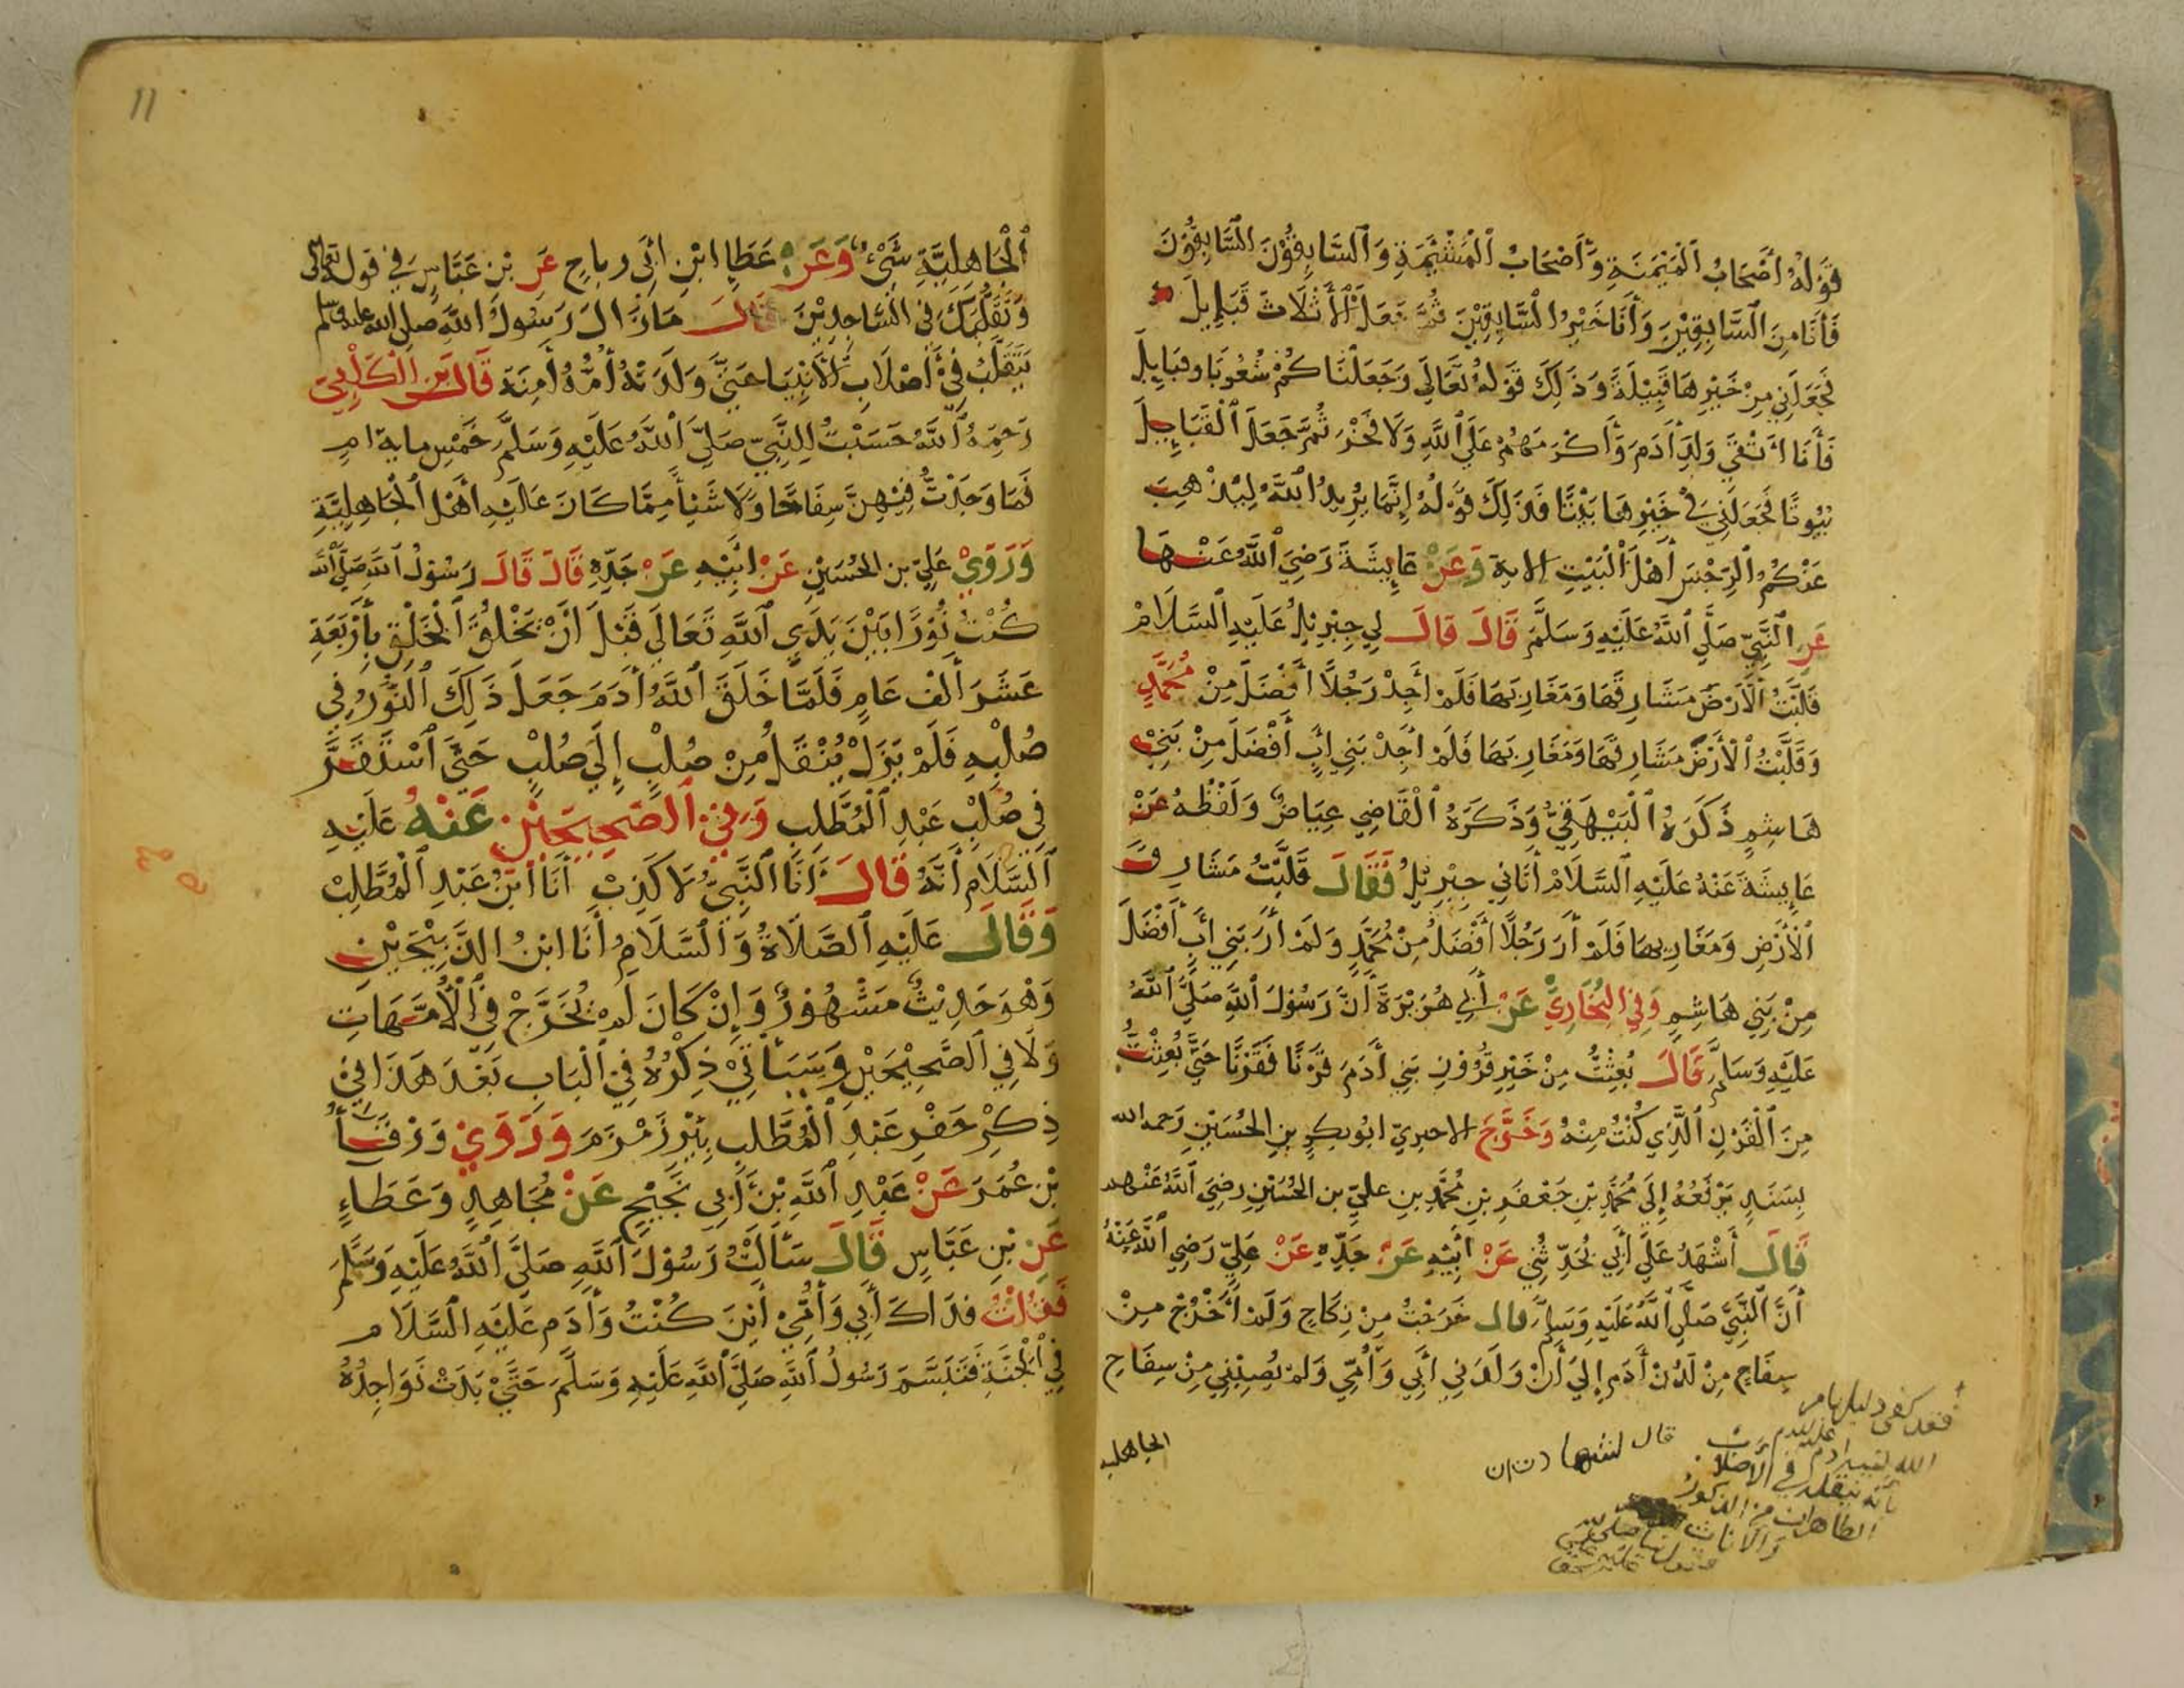 قَوْلُهُ أَصْحَابُ الْمَيْمَنَةِ وَأَصْحَابُ الْمَشْئَمَةِ وَالسَّابِقُوْنَ السَّابِقُوْنَ
فَأَنَا مِنَ السَّابِقِيْنَ وَأَنَا خَيْرُ السَّابِقِيْنَ ثُمَّ جَعَلَ الْأَثْلَاثَ قَبَايِلَ
فَجَعَلَنِي مِنْ خَيْرِهَا قَبِيْلَةً وَذَلِكَ قَوْلُهُ تَعَالَى وَجَعَلْنَاكُمْ شُعُوبًا وقبَايِلَ
فَأَنَا أَتْقَي وَلَدِ أَدَمَ وَأَكْرَمَهُمْ عَلَي اللَّهِ وَلَا فَخْرَ ثُمَّ جَعَلَ الْقَبَايِلَ
بُيُوتًا فَجَعَلَنِي فِي خَيْرِهَا بَيْتًا فَذَلِكَ قَوْلُهُ إِنَّمَا يُرِيدُ اللَّهُ لِيُذْهِبَ
عَنْكُمُ الرِّجْسَ أَهْلَ الْبَيْتِ الاية وَعَنْ عَايِشَةَ رَضِيَ اللَّهُ عَنْهَا
عَنِ النَّبِيِّ صَلَّي اللَّهُ عَلَيْهِ وَسَلَّمَ قَالَ قَالَ لِي جِبْرِيْلُ عَلَيْهِ السَّلَامْ
قَلَّبْتُ الْأَرْضَ مَشَارِقَهَا وَمَغَارِبَهَا فَلَمْ أَجِدْ رَجُلًا أَفْضَلَ مِنْ مُحَمَّدٍ
وَقَلَّبْتُ الْأَرْضَ مَشَارِقَهَا وَمَغَارِبَهَا فَلَمْ أَجِدْ بَنِي أَبٍ أَفْضَلَ مِنْ بَنِيْ
هَاشِمٍ ذَكَرَهُ الْبَيْهَقِيُّ وَذَكَرَهُ الْقَاضِي عِيَاضٌ وَلَفْظُهُ عَنْ
عَايِشَةَ عَنْهُ عَلَيْهِ السَّلَامْ أَتَانِي جِبْرِيْلُ فَقَالَ قَلَّبْتُ مَشَارِقَ
الْأَرْضِ وَمَغَارِبهَا فَلَمْ أَرَ رَجُلًا أَفْضَلُ مِنْ مُحَمَّدٍ وَلَمْ أَرَ بَنِي أَبٍ أَفْضَلَ
مِنْ بَنِي هَاشِمٍ وَفِي الْبُخَارِيِّ عَنْ أَبِي هُرَيْرَةَ أَنَّ رَسُوْلَ اللَّهِ صَلَّي اللَّهُ
عَلَيْهِ وَسَلَّمَ قَالَ بُعِثْتُ مِنْ خَيْرِ قُرُوْنِ بَنِي أَدَمَ قَرْنًا فَقَرْنًا حَتَّي بُعِثْتُ
مِنَ الْقَرْنِ الَّذِي كُنْتُ مِنْهُ وَخَرَّجَ الاجرِيّ ابُو بكرٍ بنِ الْحُسَيْنِ رَحمه الله
بِسَنَدٍ يَرْفَعُهُ إِلَي مُحَمَّدِ بْنِ جَعْفَرِ بْنِ مُحَمَّدِ بنِ عليّ بن الحُسَيْنِ رضِيَ اللَّهُ عَنْهم
قَالَ أَشْهَدُ عَلَي أَبِي يُحَدِّثُنِي عَنْ أَبِيْهِ عَنْ جَدِّهِ عَنْ عَلِيّ رَضِي اللَّهُ عَنْهُ
أَنَّ النَّبِيَّ صَلَّي اللَّهُ عَلَيْهِ وَسَلَّمَ قال خَرَجْتُ مِنْ نِكَاحٍ وَلَمْ أَخْرُجْ مِنْ
سِفَاحٍ مِنْ لَدُنْ أَدَمِ إِلَي أَنْ وَلَدَنِي أَبِي وَأُمِّي وَلَمْ يُصِبْنِي مِنْ سِفَاحِ
الجاهلية
فقد كفى دليلها من
الله لنبيه ادم عليه السلام
بأنه ينقله في الاصلاب
الطاهرات من الذكور
والاناث
قال
11
الْجَاهِلِيَّةِ شَيْءٌ وَعَنْ عَطَا ابْنِ أَبِي رباحٍ عَنِ بْنِ عَبَّاسٍ فِي قوله تعالى
وَتَقَلُّبَكَ فِي السَّاجِدِيْنَ قَالَ مَازَالَ رَسُولُ اللَّهِ صلى الله عليه وسلم
يَتَقَلَّبُ فِيْ أَصْلَابِ الْأَنْبِيَا حَتَّيَ وَلَدَتْهُ أُمُّهُ أَمِنَة قَالَ بن الْكَلْبِيّ
رَحِمَهُ اللَّهُ حَسَبْتُ لِلنَّبِيّ صَلَّيَ اللَّهُ عَلَيْهِ وَسَلَّمَ خَمْس ماية امٍ
فَمَا وَجَدْتُ فِيْهِنَّ سِفَاحًا وَلَا شَيْأً مِمَّا كَانَ عَلَيْهِ أَهْلُ الْجَاهِلِيَّةِ
وَرَوَيْ عَلِيّ بن الحُسَيْنِ عَنْ ابِيْهِ عَنْ جَدِّهِ قَالَ قَالَ رَسُوْلُ اللَّهِ صَلَّي اللَّهُ
كُنْتُ نُوْرًا بَيْنَ يَدَي اللَّهِ تَعَالَي قَبْلَ أَنْ يَخْلُقَ الْخَلْقِ بِأَرْبَعَةِ
عَشَرَ أَلْف عَامٍ فَلَمَّا خَلَقَ اللَّهُ أَدَمَ جَعَلَ ذَلِكَ النُّوْرُ فِي
صُلْبِهِ فَلَمْ يَزَلْ يُنْقَلُ مِنْ صُلْبٍ إِلَي صُلْبٍ حَتَّيَ اسْتَقَرَّ
فِي صُلْبِ عَبْدِ الْمُطَّلِبِ وَفِيْ الصَّحِيْحَيْنِ عَنْهُ عَلَيْهِ
السَّلَام أَنَّهُ قَالَ أَنَا النَّبِيُّ لَا كَذِبْ أَنَا ابْنُ عَبْدِ الْمُطَّلِبْ
وَقَالَ عَلَيْهِ الصَّلَاةُ وَالسَّلَامُ أَنَا ابْنُ الذَّبِيْحَيْنِ
وَهُوَ حَدِيْثٌ مَشْهُوْرٌ وَإِنْ كَانَ لَمْ يُخَرَّجْ فِي الْأُمَّهَاتِ
وَلَا فِي الصَّحِيْحَيْنِ وَسَيَأْتِيْ ذِكْرُهُ فِيْ الْبَابِ بَعْدَ هَذَا فِيْ
ذِكِرْ حَفْرِ عَبْدِ الْمُطَّلِبِ بِيْرَ زَمْزَمَ وَرَوَيْ وَرْقَاءُ
بْنِ عُمَرَ عَنْ عَبْدِ اللَّهِ بْنَ أَبِي نَجِيْحٍ عَنْ مُجَاهِدٍ وَعَطَاءٍ
عَنِ بْنِ عَبَّاسِ قَالَ سَأَلْتُ رَسُوْلَ اللَّهِ صَلَّيَ اللَّهُ عَلَيْهِ وَسَلَّمَ
فَقُلْتُ فدَاكَ أَبِي وَأُمِّيْ أَيْنَ كُنْتُ وَأَدَم عَلَيْهِ السَّلَام
فِي الْجَنَّةِ فَتَبَسَّمَ رَسُولُ اللَّهِ صَلَّيَ اللَّهِ عَلَيْهِ وَسَلَّمَ حَتَّيْ بَدَتْ نَوَاجِذُهُ